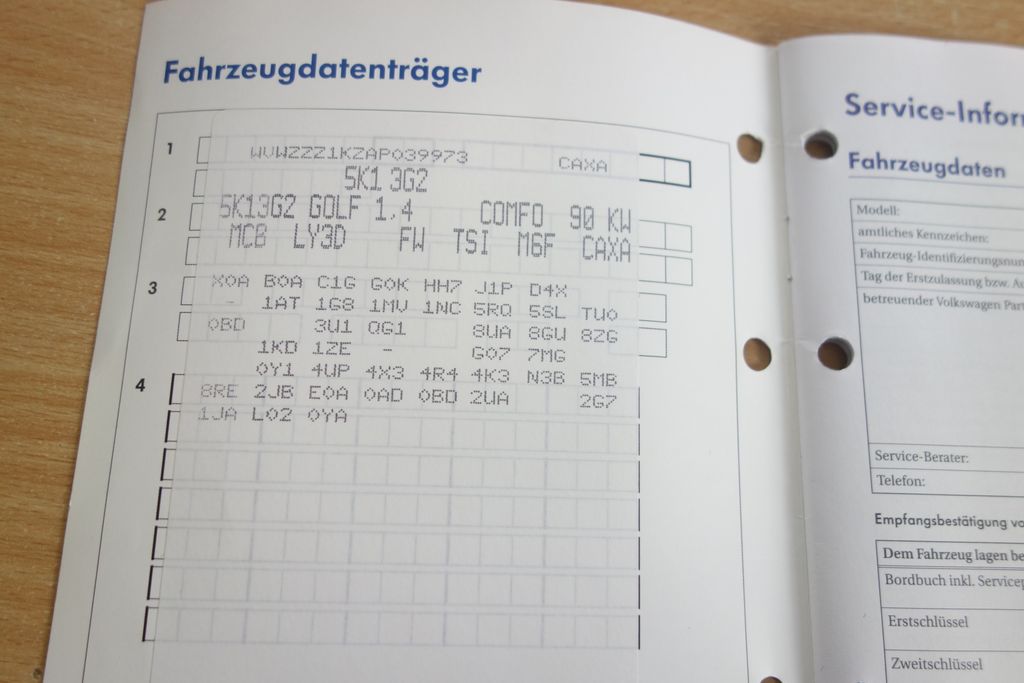 Fahrzeugdatenträger
1
WVWZZZ1KZAP039973 CAXA
5K1 3G2
2
5K13G2 GOLF 1,4 COMFO 90 KW
MCB LY3D FW TSI M6F CAXA
3
X0A B0A C1G G0K HH7 J1P D4X
- 1AT 1G8 1MV 1NC 5RQ 5SL TU0
0BD 3U1 QG1 8UA 8GU 8ZG
1KD 1ZE - G07 7MG
0Y1 4UP 4X3 4R4 4K3 N3B 5MB
4
8RE 2JB E0A 0AD 0BD 2UA 2G7
1JA L02 0YA
Service-Infor
Fahrzeugdaten
Modell:
amtliches Kennzeichen:
Fahrzeug-Identifizierungsnu
Tag der Erstzulassung bzw. Au
betreuender Volkswagen Part
Service-Berater:
Telefon:
Empfangsbestätigung vo
Dem Fahrzeug lagen be
Bordbuch inkl. Servicep
Erstschlüssel
Zweitschlüssel